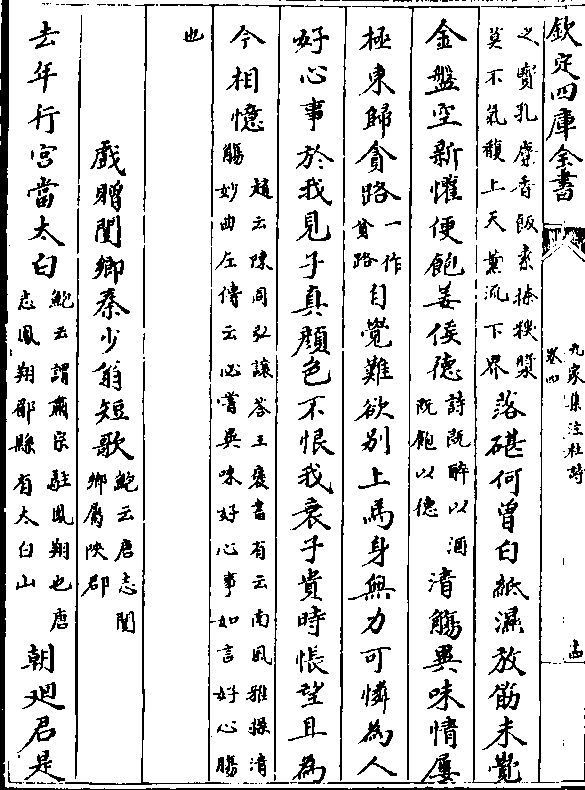 欽定四庫全書
九家集注杜詩
卷四
之寶孔麝香飯素糗漿
莫不氣馥上天薰流下界
落碪何曾白紙濕放筯未覺
金盤空新懽便飽姜侯德
詩既醉以酒
既飽以德
清觴異味情屢
極東歸貪路
一作
貧路
自覺難欲別上馬身無力可憐為人
好心事於我見子真顏色不恨我衰子貴時悵望且為
今相憶
趙云陳周弘讓荅王褒書有云南風雅操清
觴妙曲左傳云必嘗異味好心事如言好心腸
也
戲贈閿鄉秦少翁短歌
鮑云唐志閿
鄉屬陜郡
去年行宮當太白
鮑云謂肅宗駐鳳翔也唐
志鳳翔郿縣有太白山
朝廻君是